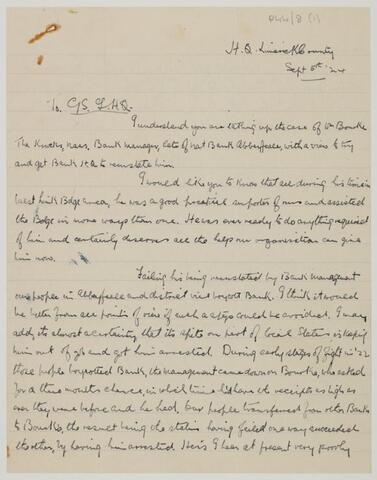 H.Q. Limerick County
Sept 5th '24
To C/S G.H.Q.
I understand you are taking up the case of Wm Bourke
The Knocks, Naas, Bank manager, late of Nat Bank Abbeyfeale, with a view to try
and get Bank H.Q to reinstate him.
I would like you to know that all during his time in
West Limk Bde area, he was a good practical supporter of ours and assisted
the Bde in more ways than one. He was ever ready to do anything required
of him and certainly deserves all the help our organisation can give
him now.
Failing his being reinstated by Bank management
our people in Abbeyfeale and district will boycott Bank. I think it would
be better from all points of view if such a step could be avoided. I may
add, its almost a certainty that its spite on part of local Staters is keeping
him out of job and got him arrested. During early stages of fight in '22
those people boycotted Bank, its management came down on Bourke, who asked
for a three months chance, in which time he'd have the receipts as high as
ever they were before and he had. Our people transferred from other Banks
to Bourke, the result being the staters having failed one way succeeded
the other, by having him arrested. He is I hear at present very poorly